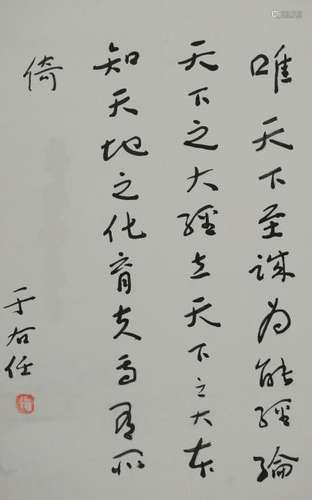 唯天下至誠為能經綸
天下之大經立天下之大本
知天地之化育夫焉有所
倚
于右任